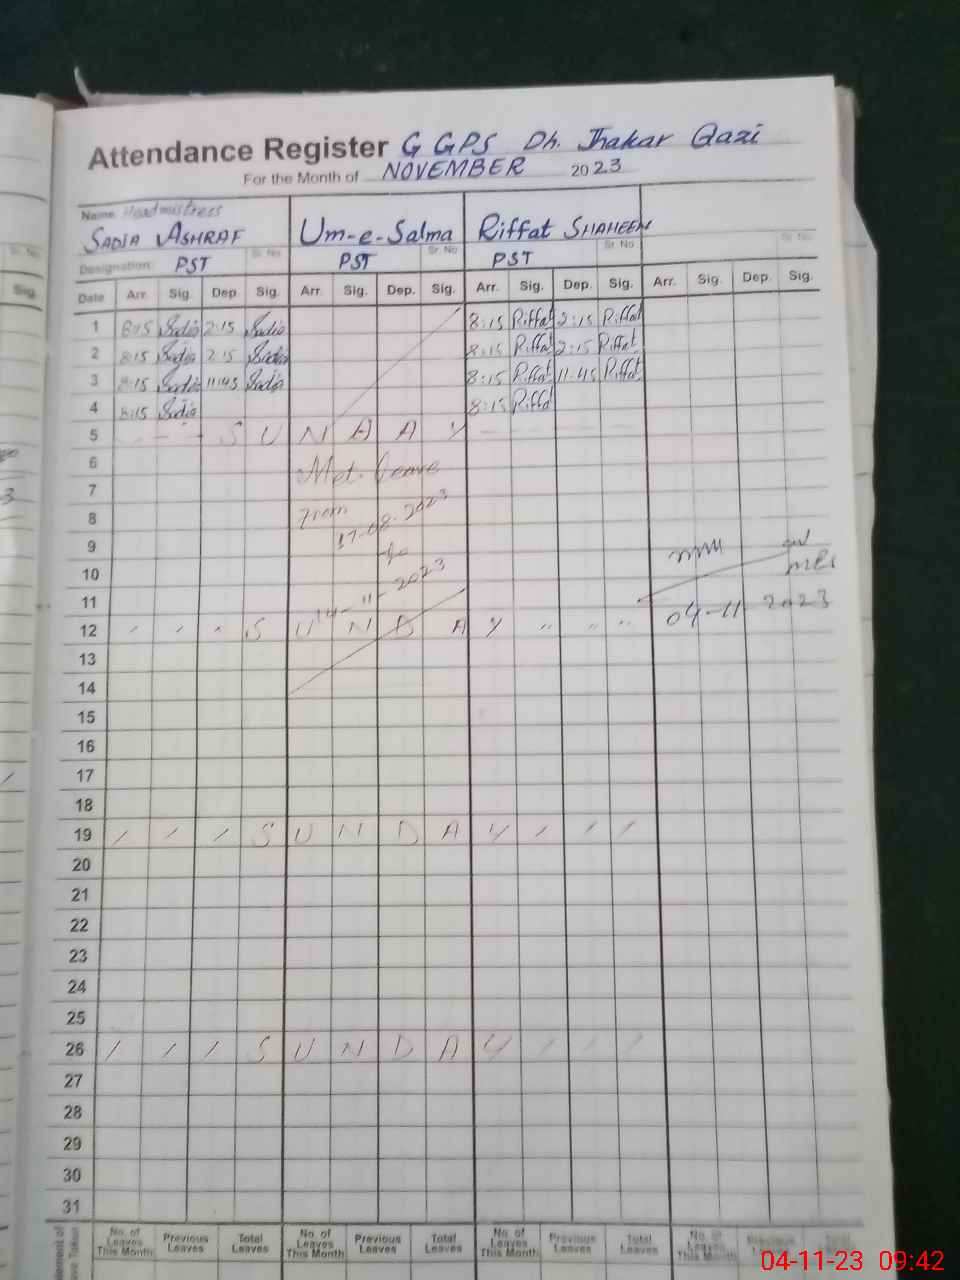 Attendance Register G GPS Dh. Jhakar Qazi
For the Month of NOVEMBER 2023
Name: Headmistress
SADIA ASHRAF Um-e-Salma Riffat SHAHEEN
Sr. No Sr. No Sr. No Sr. No
Designation: PST PST PST
Date Arr. Sig. Dep. Sig. Arr. Sig. Dep. Sig. Arr. Sig. Dep. Sig. Arr. Sig. Dep. Sig.
1 8:15 Sadia 2:15 Sadia 8:15 Riffat 2:15 Riffat
2 8:15 Sadia 2:15 Sadia 8:15 Riffat 2:15 Riffat
3 8:15 Sadia 11:45 Sadia 8:15 Riffat 11:45 Riffat
4 8:15 Sadia 8:15 Riffat
5 - - - S U N A A Y - - - -
6 Met. Leave
7
8 From 17-08-2023
9 to
10
11 14-11-2023 04-11-2023
12 " " " S U N D A Y " " "
13
14
15
16
17
18
19 / / / S U N D A Y / / /
20
21
22
23
24
25
26 / / / S U N D A Y / / /
27
28
29
30
31
No. of Leaves This Month Previous Leaves Total Leaves No. of Leaves This Month Previous Leaves Total Leaves No. of Leaves This Month Previous Leaves Total Leaves No. of Leaves This Month Previous
04-11-23 09:42